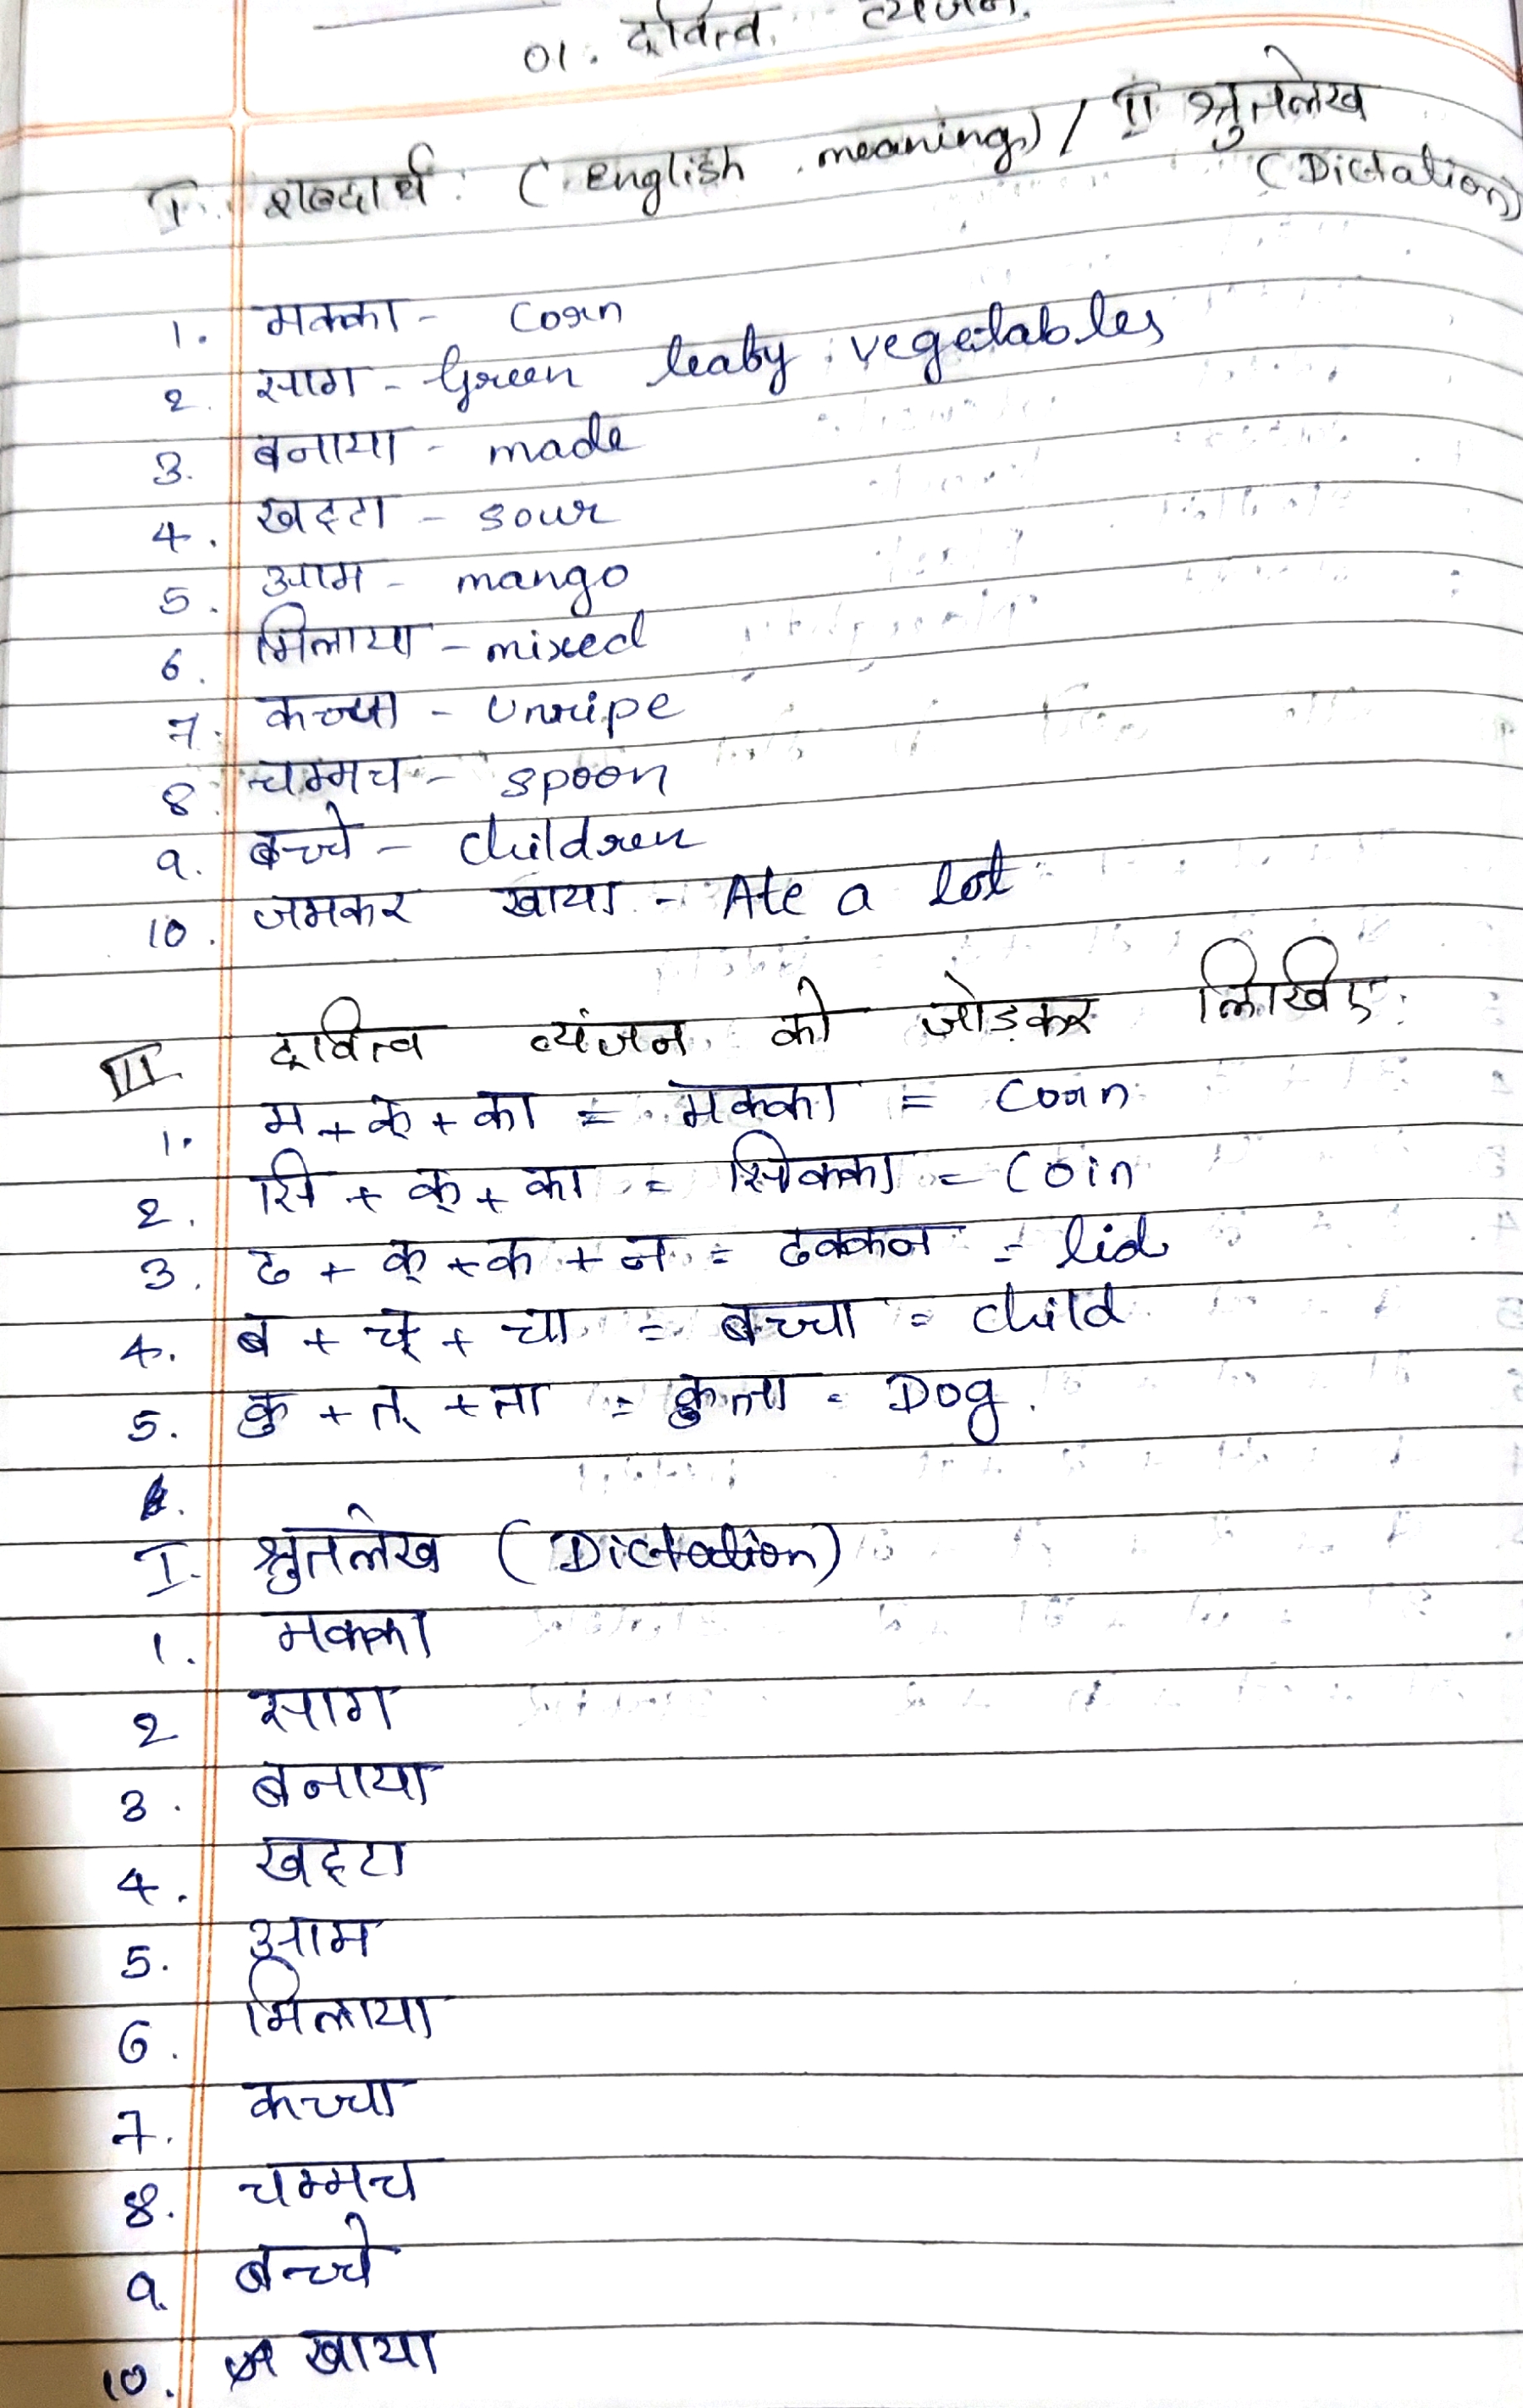 01. द्वित्व व्यंजन.
I. शब्दार्थ (English meanings) / II श्रुतलेख
(Dictation)
1. मक्का - Corn
2. साग - Green leafy vegetables
3. बनाया - made
4. खट्टा - sour
5. आम - mango
6. मिलाया - mixed
7. कच्चा - Unripe
8. चम्मच - spoon
9. बच्चे - Children
10. जमकर खाया - Ate a lot
III द्वित्व व्यंजन को जोड़कर लिखिए.
1. म + क् + का = मक्का = Corn
2. सि + क् + का = सिक्का = Coin
3. ढ + क् + क + न = ढक्कन = lid
4. ब + च् + चा = बच्चा = child
5. कु + त् + ता = कुत्ता = Dog.
I. श्रुतलेख (Dictation)
1. मक्का
2 साग
3. बनाया
4. खट्टा
5. आम
6. मिलाया
7. कच्चा
8. चम्मच
9. बच्चे
10. खाया